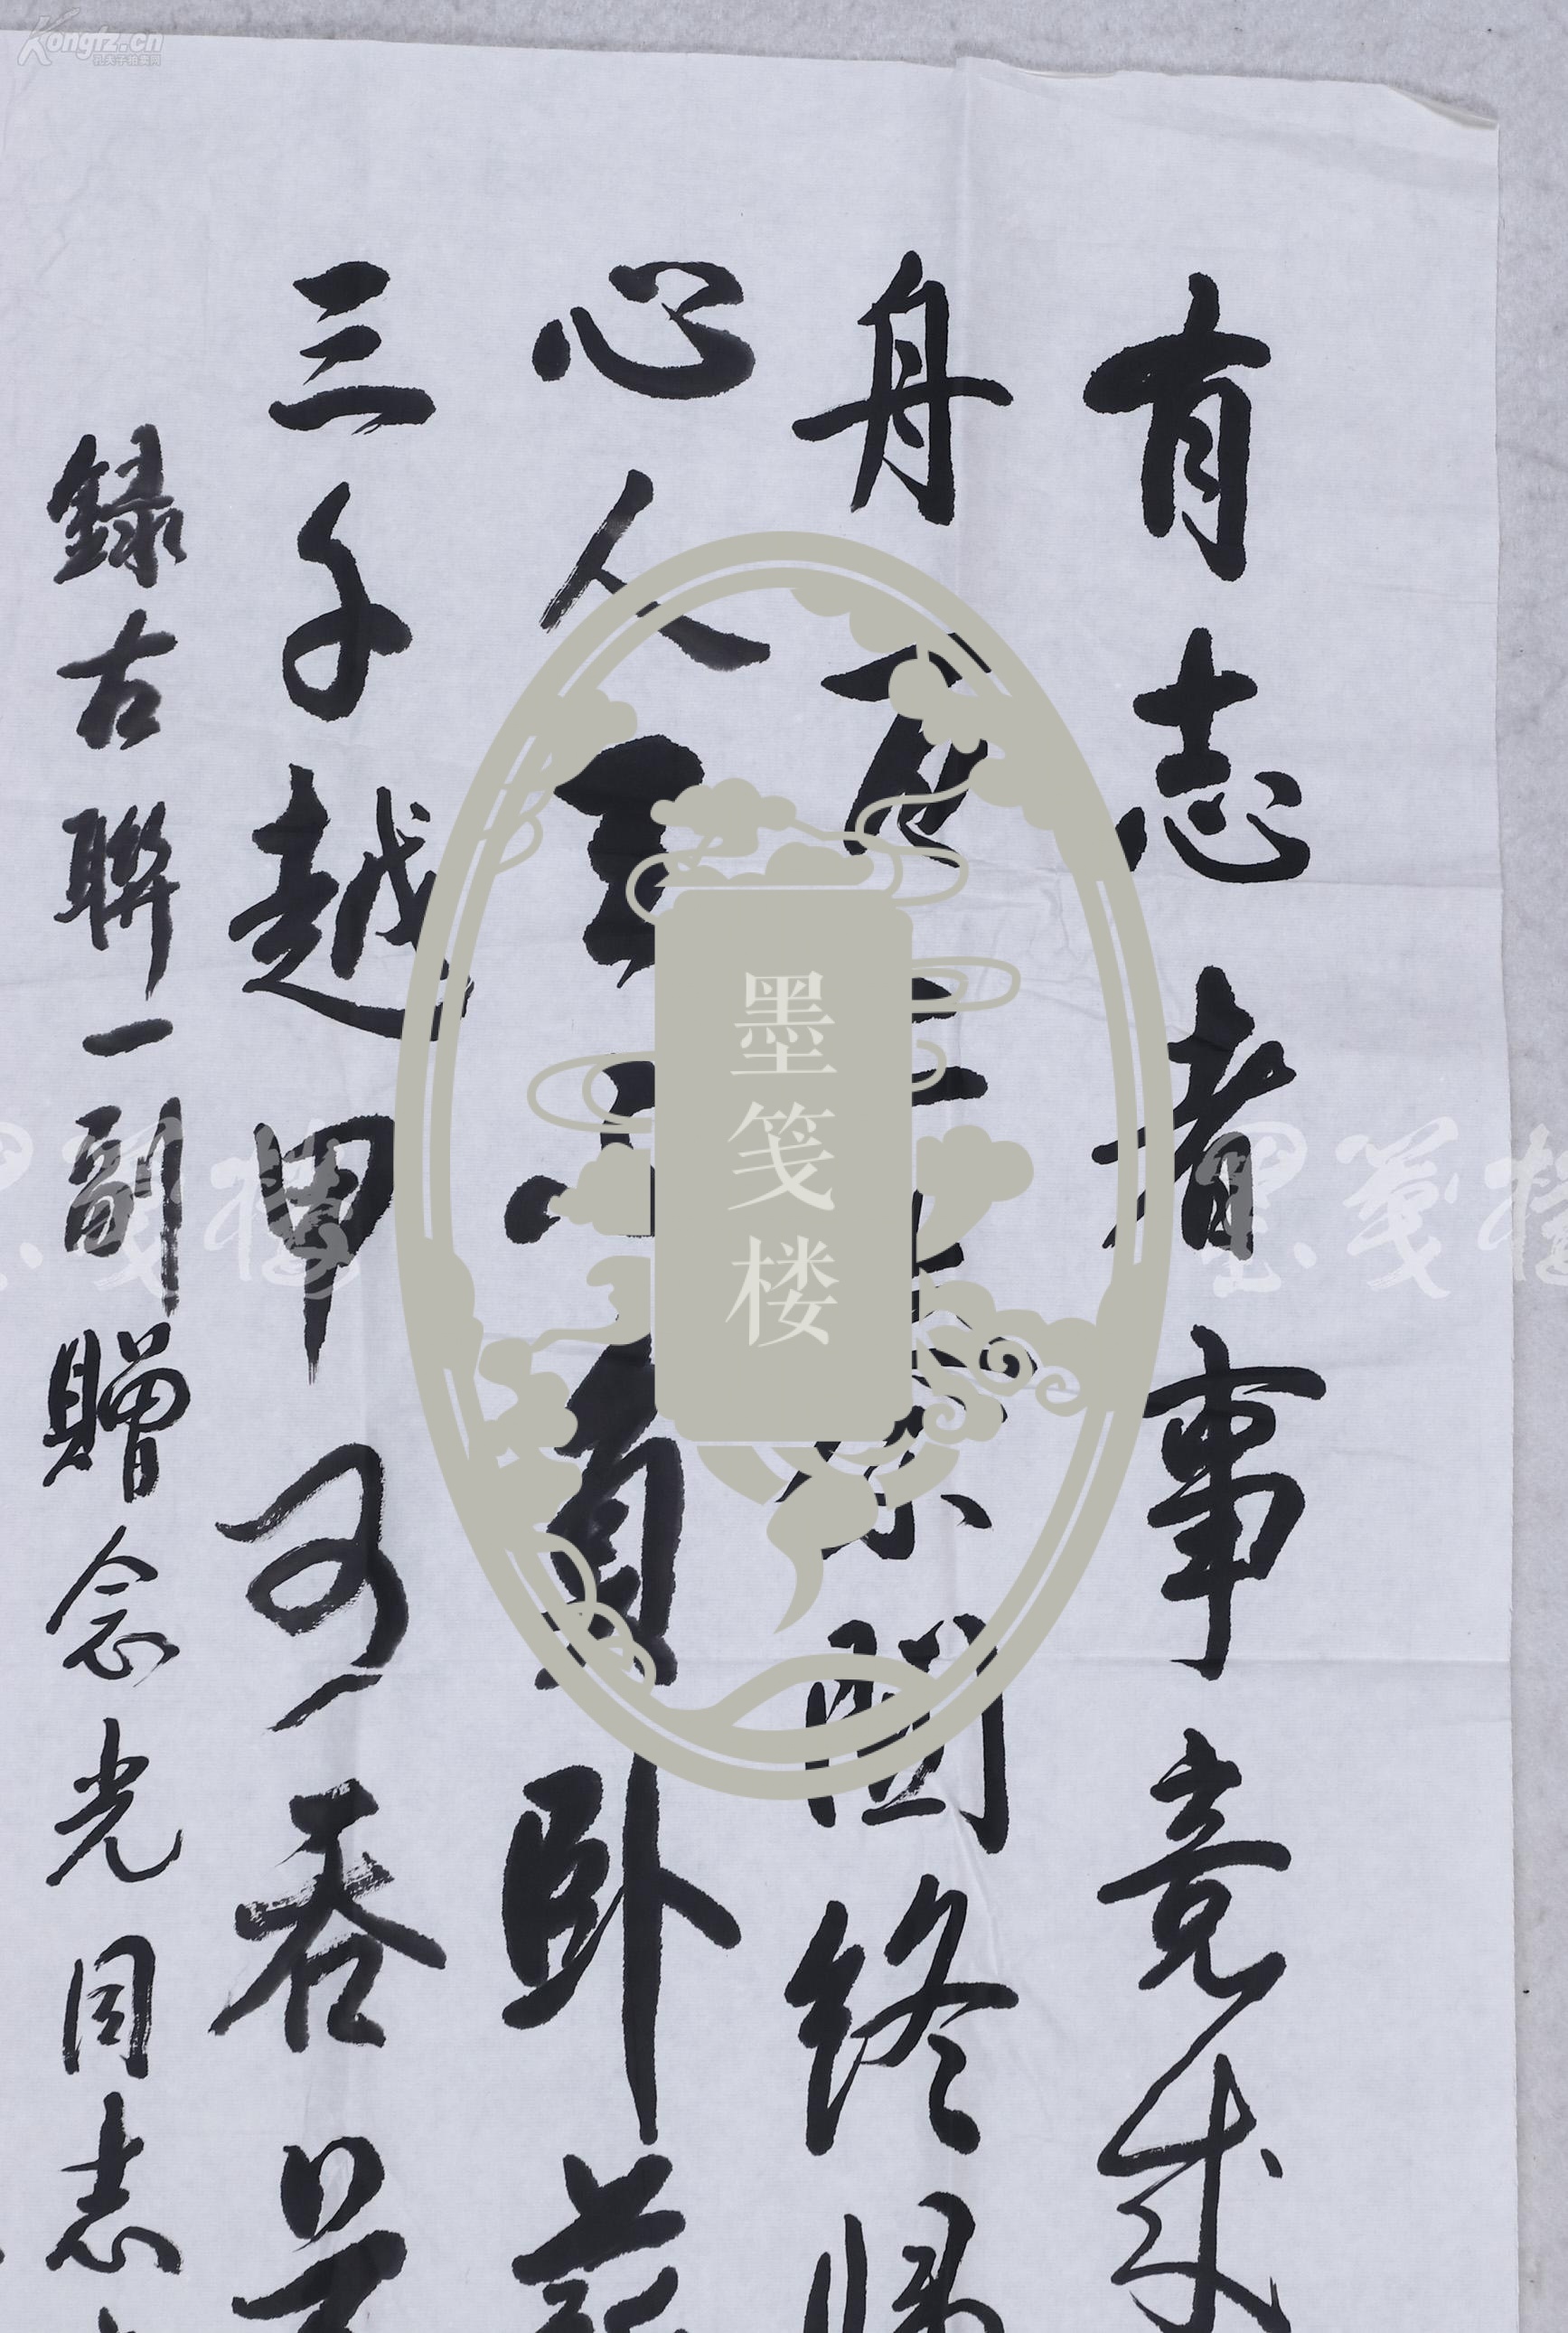 Kongfz.cn
孔夫子拍卖网
有志者事竟成
舟百二秦關終歸
心人天不負卧薪
三千越甲可吞吴
録古聯一副贈念光同志
墨笺楼
墨笺楼
墨笺楼